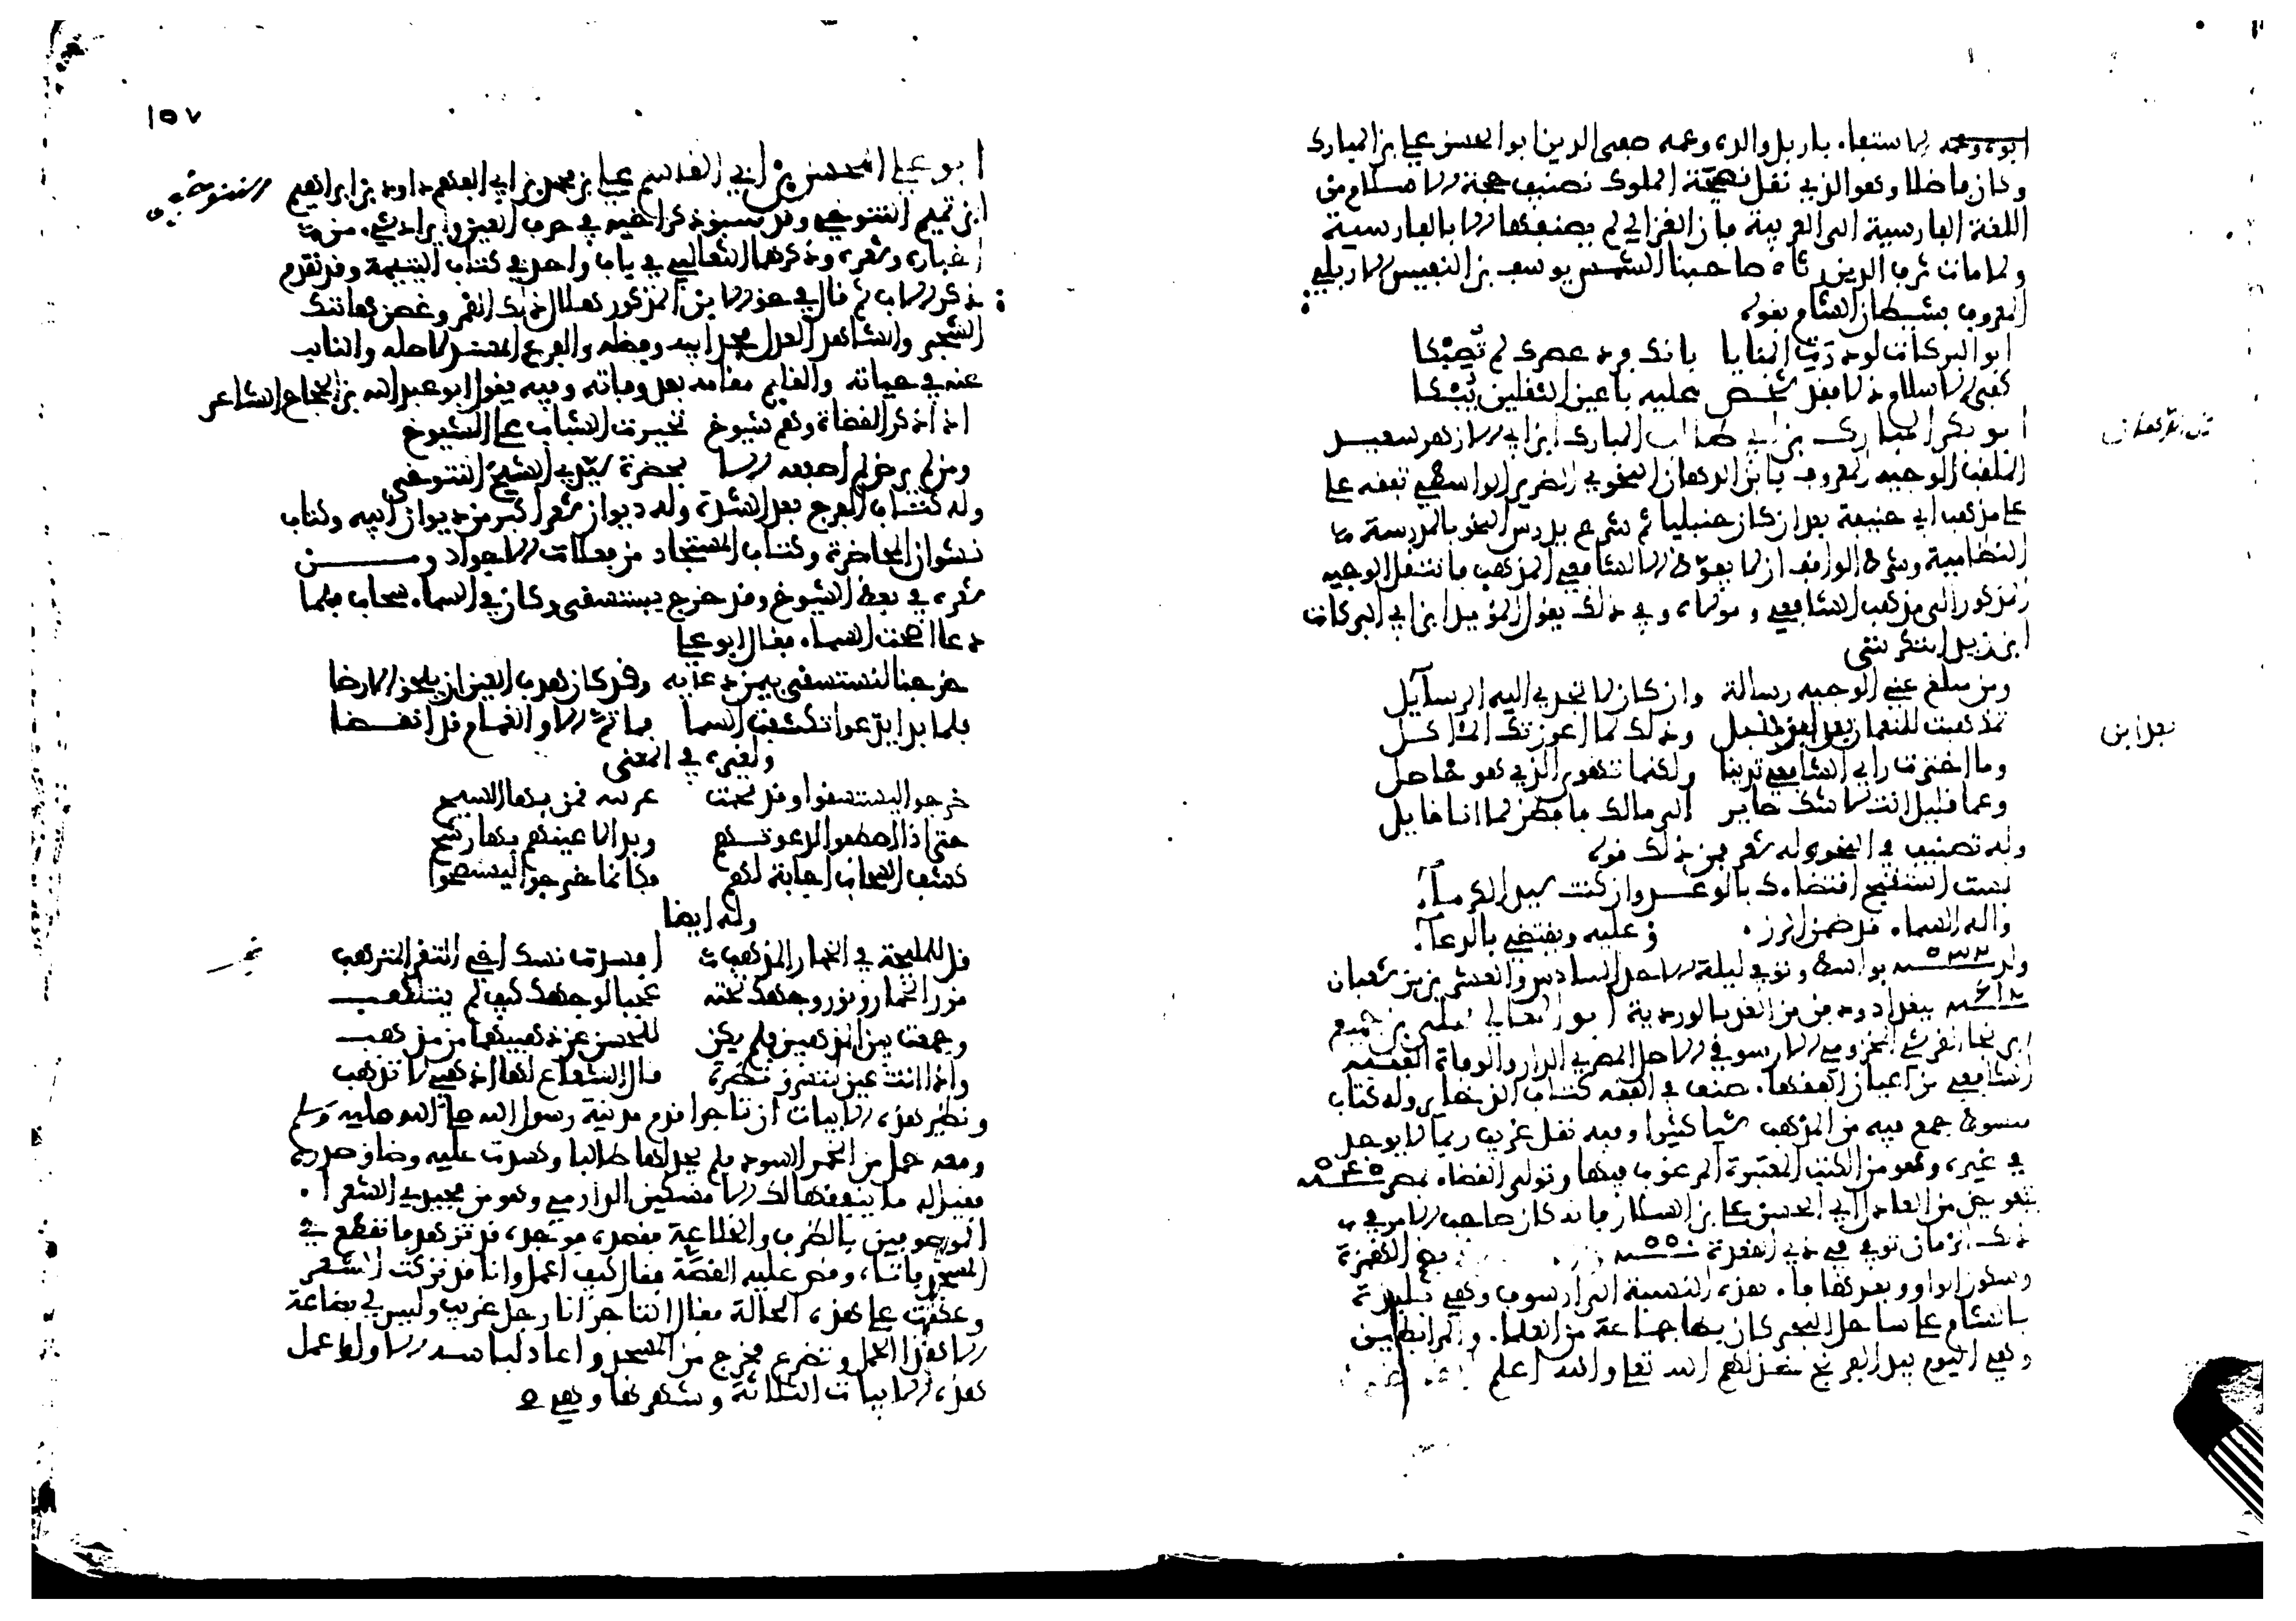 ابوه وعمه الاستيفاء باربل والده وعمه صفي الدين ابو الحسن علي بن المبارك
وكان فاضلا وهو الذي نقل نصيحة الملوك تصنيف حجة الاسلام من
اللغة الفارسية الى العربية فان الغزالي لم يصنعها الا بالفارسية
ولما مات شرف الدين رثاه صاحبنا الشمس يوسف بن النفيس الاربلي
المعروف بشيطان الشام بقوله
ابو البركات لو درت المنايا بانك فرد عصرك لم تصبكا
كفى الاسلام رزءا فقد شخص عليه باعين الثقلين يبكا
ابو بكر المبارك بن ابي طالب المبارك ابن ابي الازهر سعيد
ابن الدهان
الملقب الوجيه المعروف بابن الدهان النحوي الضرير الواسطي تفقه على
على مذهب ابي حنيفة بعد ان كان حنبليا ثم شغر تدريس النحو بالمدرسة
النظامية وشرط الواقف ان لا يفوض الا لشافعي المذهب فانتقل الوجيه
المذكور الى مذهب الشافعي وتولاه وفي ذلك يقول المؤيد ابن ابي البركات
ابن زيد التكريتي
ومن مبلغ عني الوجيه رسالة وان كان لا تجدي اليه الرسائل
تمذهبت للنعمان بعد ابن حنبل وذلك لما اعوزتك المآكل
بعد ابن
وما اخترت راي الشافعي تدينا ولكنما تهوى الذي هو حاصل
وعما قليل انت لا شك صاير الى مالك فافطن لما انا قايل
وله تصنيف في النحو وله شعر فمن ذلك قوله
لست استقبح اقتضاءك بالوعد وان كنت سيد الكرماء
واله السماء قد ضمن الرزق عليه ويقتضى بالدعاء
ولد بواسط وتوفي ليلة الاحد السادس والعشرين من شعبان
ببغداد ودفن من الغد بالوردية ابو المعالي مجلي بن جميع
ابن نجا القرشي المخزومي الارسوفي الاصل المصري الدار والوفاة الفقيه
الشافعي من اعيان الفقهاء صنف في الفقه كتاب الذخاير وله كتاب
مبسوط جمع فيه من المذهب شيا كثيرا وفيه نقل غريب ربما لا يوجد
في غيره وهو من الكتب المعتبرة المرغوب فيها وتولى القضاء بمصر
بتفويض من العادل ابي الحسن علي بن السلار فانه كان صاحب الامر في
ذلك الزمان توفي في ذي القعدة بفتح الهمزة
وسكون الواو وبعدها فاء هذه النسبة الى ارسوف وهي بليدة
بالشام على ساحل البحر كان بها جماعة من العلماء والمرابطين
وهي اليوم بيد الفرنج خذلهم الله تعلى والله اعلم
١٥٧
ابو علي المحسن بن ابي القاسم علي بن محمد بن ابي الفهم داود بن ابراهيم
ابن تميم التنوخي وقد سبق ذكر ابيه في حرف العين وايراد شيء من
اخباره وشعره وذكرهما الثعالبي في باب واحد في كتاب اليتيمة وقدم
ذكر الاب ثم قال في حق الابن المذكور هلال ذلك القمر وغصن هاتيك
الشجر والشاهد العدل بمجد ابيه وفضله والفرع المشيد لاصله والنائب
عنه في حياته والقايم مقامه بعد وفاته وفيه يقول ابو عبد الله بن الحجاج الشاعر
اذا ذكر القضاة وهم شيوخ تخيرت الشباب على الشيوخ
ومن لم يرض لم اصفعه الا بحضرة سيدي الشيخ التنوخي
وله كتاب الفرج بعد الشدة وله ديوان شعر اكبر من ديوان ابيه وكتاب
نشوان المحاضرة وكتاب المستجاد من فعلات الاجواد ومن
شعره في بعض الشيوخ وقد خرج يستسقى وكان في السماء سحاب فلما
دعا اصحت السماء فقال ابو علي
خرجنا لنستسقي بيمن دعايه وقد كاد هدب الغيم ان يلحف الارضا
فلما بدا يدعوا تكشفت السما فما تم الا والغمام قد انقضا
ولغيره في المعنى
خرجوا ليستسقوا وقد نجمت غربية قمن بها السح
حتى اذا اصطفوا لدعوتهم وبدا لاعينهم بها رشح
كشف السحاب اجابة لهم وكانما خرجوا ليستصحوا
وله ايضا
قل للمليحة في الخمار المذهب افسدت نسك اخي التقى المترهب
نور الخمار ونور وجهك تحته عجبا لوجهك كيف لم يتلهب
وجمعت بين المذهبين فلم يكن للحسن عن ذهبيهما من مذهب
واذا اتت عين لتسرق نظرة قال الشعاع لها اذهبي لا تذهب
ونظير هذه الابيات ان تاجرا قدم مدينة رسول الله صلى الله عليه وسلم
ومعه حمل من الخمر السود فلم يجد لها طالبا وكسدت عليه وضاق صدره
فقيل له ما ينفقها لك الا مسكين الدارمي وهو من مجيدي الشعراء
الموصوفين بالظرف والخلاعة فقصده فوجده قد تزهد وانقطع في
المسجد فاتاه وقص عليه القصة فقال كيف اعمل وانا قد تركت الشعر
وعكفت على هذه الحالة فقال التاجر انا رجل غريب وليس لي بضاعة
الا هذا الحمل وتضرع فخرج من المسجد واعاد لباسه الاول وعمل
هذه الابيات الثلاثة وشهرها وهي